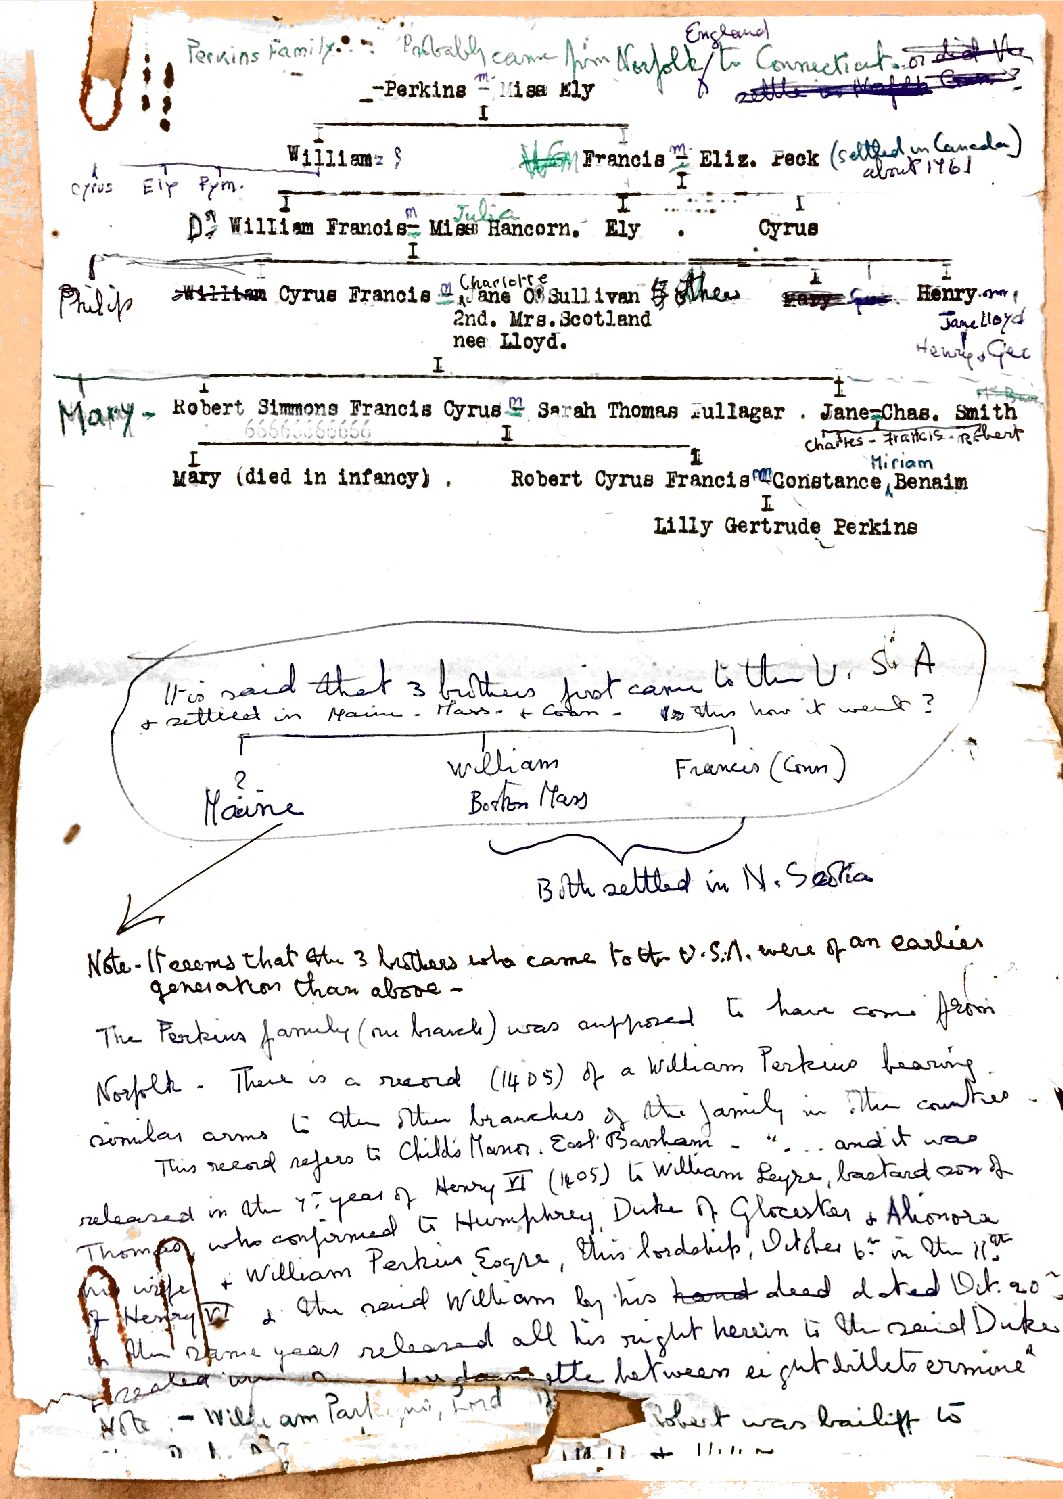 Perkins Family... Probably came from Norfolk England to Connecticut. or did the
settle in Norfolk Conn?
-Perkins m Miss Ely
William Francis m Eliz. Peck (settled in Canada)
about 1761
Cyrus Ely Pym.
Dr William Francis m Miss Julia Hancorn. Ely . Cyrus
Philip William Cyrus Francis m Charlotte Jane O'Sullivan & others Mary Geo. Henry m.
2nd. Mrs. Scotland Jane Lloyd
nee Lloyd. Henry & Geo
Mary - Robert Simmons Francis Cyrus m Sarah Thomas Fullagar . Jane=Chas. Smith
66666666666 Charles - Francis - Robert
Mary (died in infancy) . Robert Cyrus Francis m Constance Miriam Benaim
Lilly Gertrude Perkins
It is said that 3 brothers first came to the U. St A
& settled in Maine - Mass - & Conn - Is this how it went?
? William Francis (Conn)
Maine Boston Mass
Both settled in N. Scotia
Note - It seems that the 3 brothers who came to the U.S.A. were of an earlier
generation than above -
The Perkins family (our branch) was supposed to have come from
Norfolk - There is a record (1405) of a William Perkins bearing
similar arms to the other branches of the family in other counties -
This record refers to Child's Manor. East Barsham - " ... and it was
released in the 7th year of Henry VI (1405) to William Leyre, bastard son of
Thomas, who confirmed to Humphrey, Duke of Glocester & Alionora
his wife & William Perkins Esqre, this lordship, October 6th in the 11th
of Henry VI & the said William by his hand deed dated Oct. 20th
in the same year released all his right herein to the said Duke
sealed between eight billets ermine"
Note: - William Lord Robert was bailiff to